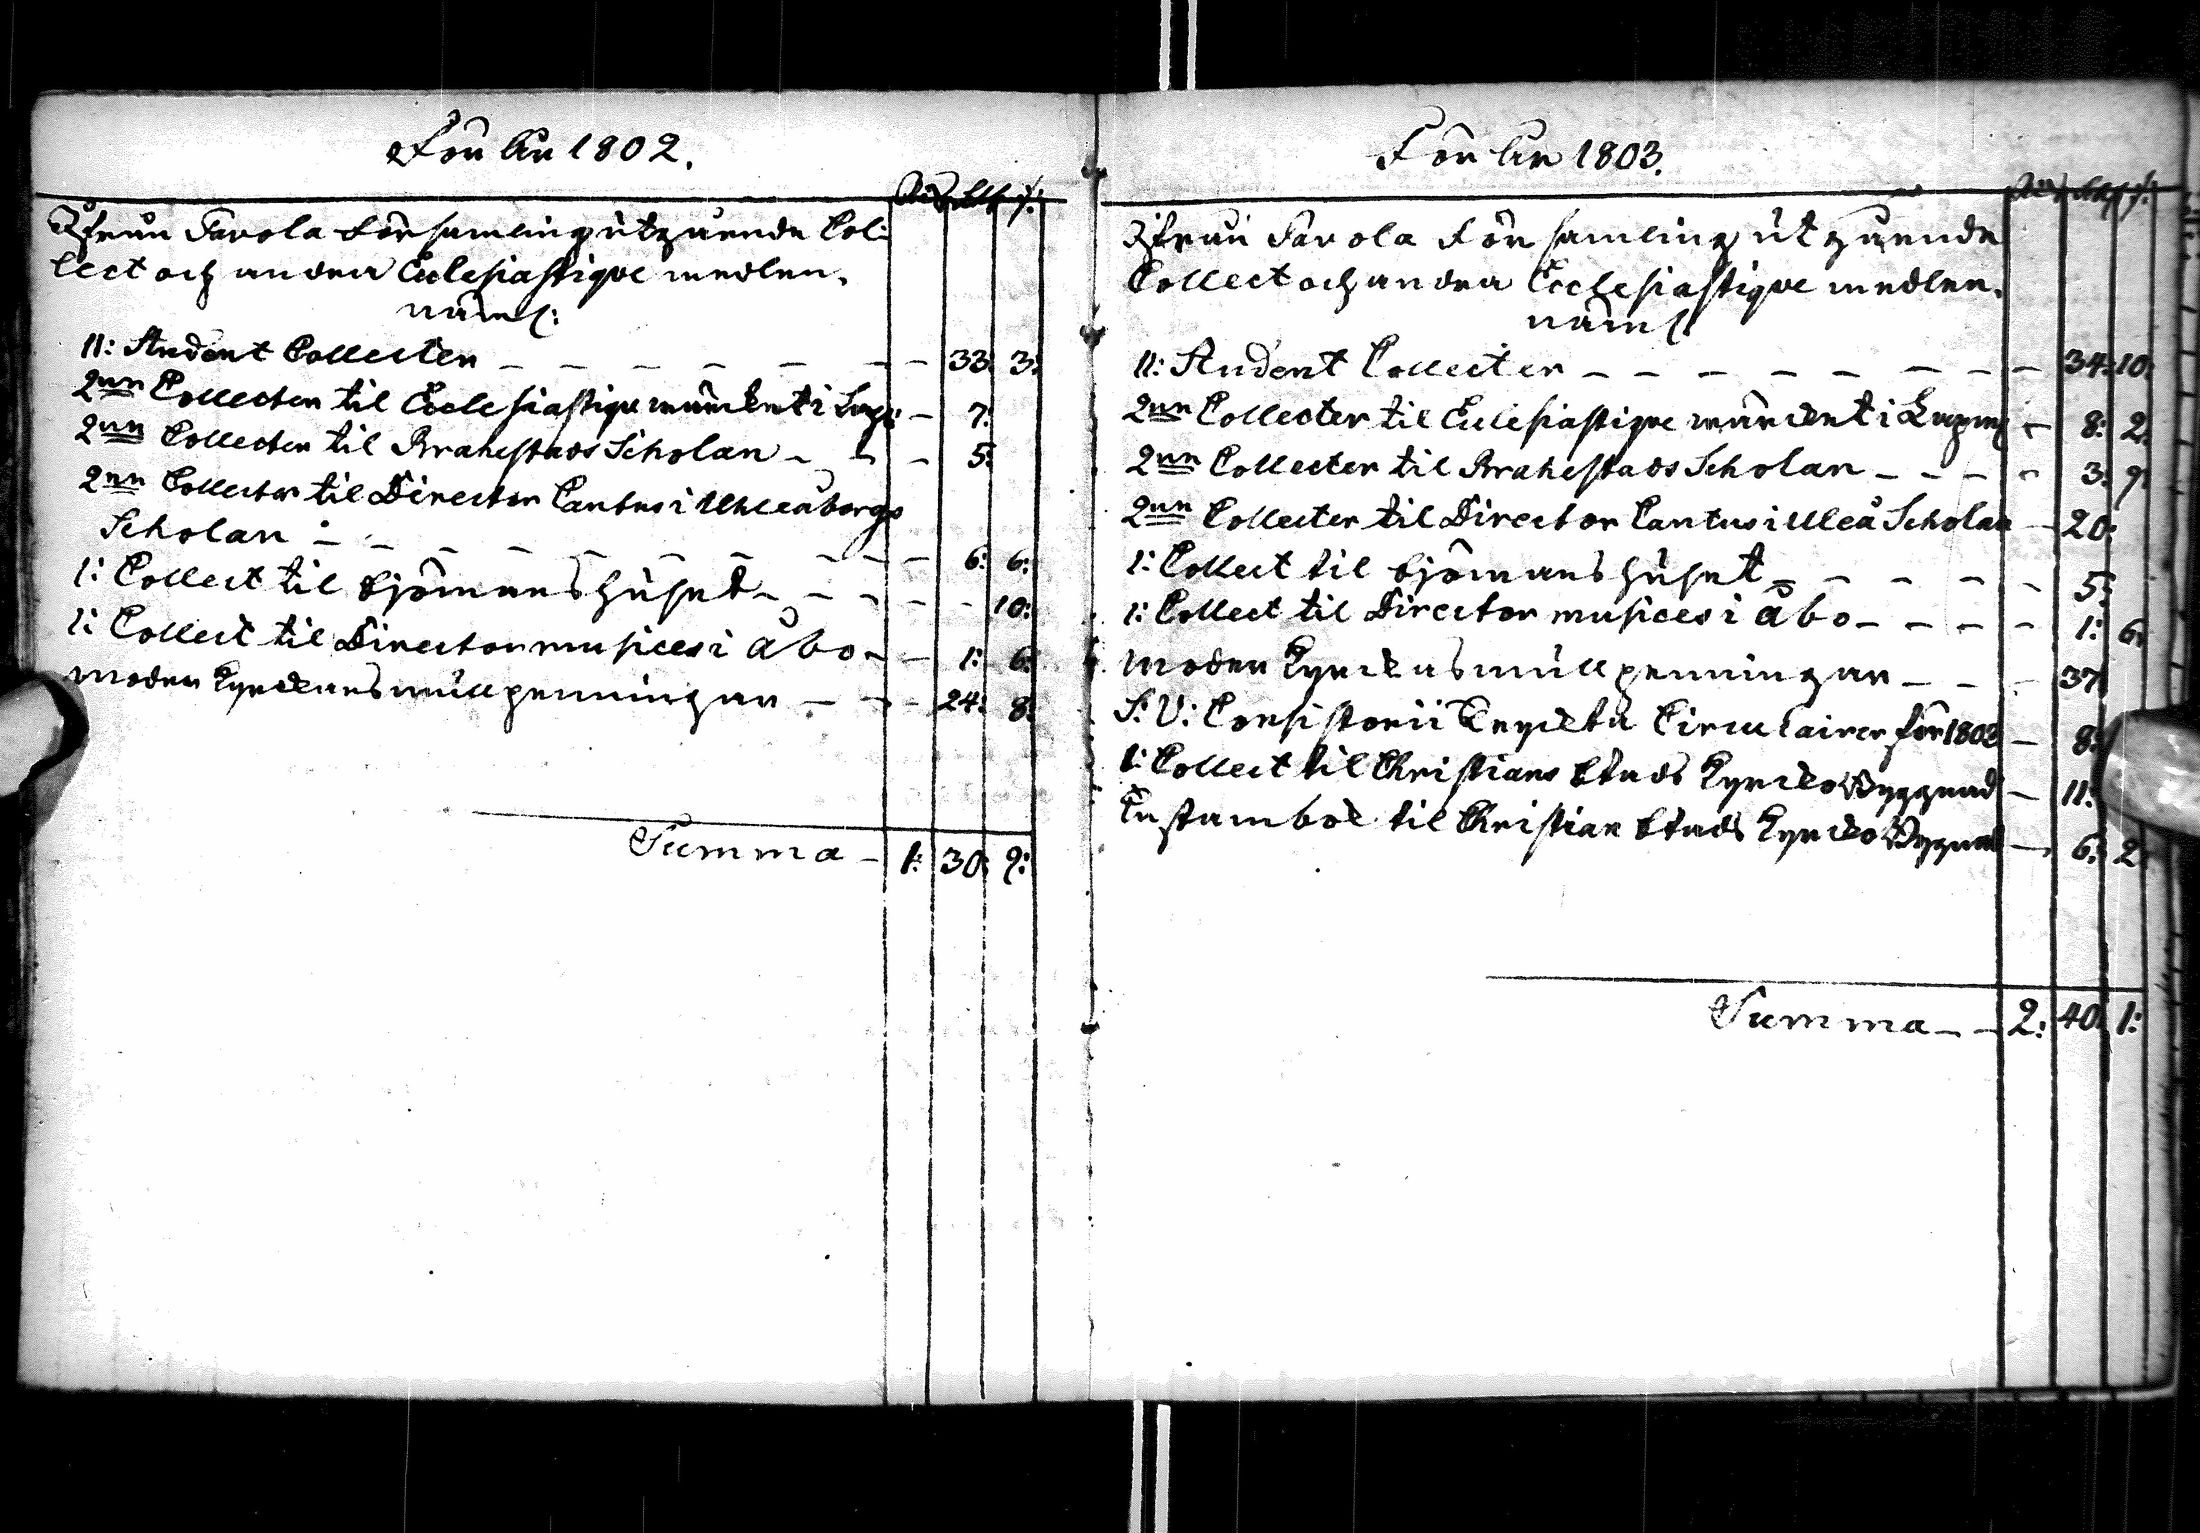 För År 1802.
Rdr sk r:
Ifrån Savola Församling utgående Col:
lect och andra Eclesiastique medlen,
näml:
11: Student Collecter — 33: 3:
2nn Collecter til Ecclesiastique wärcket i Lapp: — 7:
2nn Collecter til Brahestads Scholan — 5:
2nn Collecter til Director Cantus i Uhleåborgs
Scholan — 6: 6:
1: Collect til Sjömanshuset — 10:
1: Collect til Director musices i Åbo — 1: 6:
Moder Kyrckans mullpenningar — 24: 8:
Summa — 1: 30: 9:
För År 1803.
Rdr sk r:
Ifrån Savola Församling utgående
Collect och andra Ecclesiastique medlen,
näml:
11: Student Collecter — 34: 10:
2nn Collecter til Eclesiastique wärcket i Lappm — 8: 2:
2nn Collecter til Brahestads Scholan — 3: 9:
2nn Collecter til Director Cantus i Uleå Scholan — 20:
1: Collect til Sjömanshuset — 5:
1: Collect til Director musices i Åbo — 1: 6:
Moder Kyrckas mullpenningar — 37
S: V: Consistorii Tryckta Circulairer för 1802 — 8:
1: Collect til Christians Stads Kyrcko Byggnad — 11:
til Christian Stads Kyrcko Byggnad — 6: 2
Summa — 2: 40: 1: